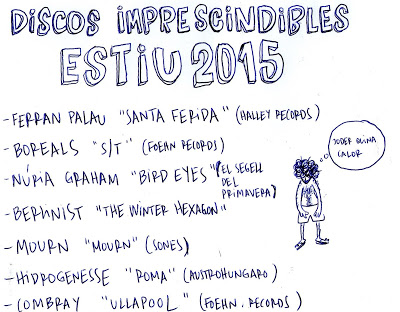 DISCOS IMPRESCINDIBLES
ESTIU 2015
- FERRAN PALAU "SANTA FERIDA" (HALLEY RECORDS)
- BOREALS "S/T" (FOEHN RECORDS)
- NÚRIA GRAHAM "BIRD EYES" (EL SEGELL
DEL
PRIMAVERA)
- BERLINIST "THE WINTER HEXAGON"
- MOURN "MOURN" (SONES)
- HIDROGENESSE "ROMA" (AUSTROHUNGARO)
- COMBRAY "ULLAPOOL" (FOEHN. RECORDS)
JODER QUINA
CALOR